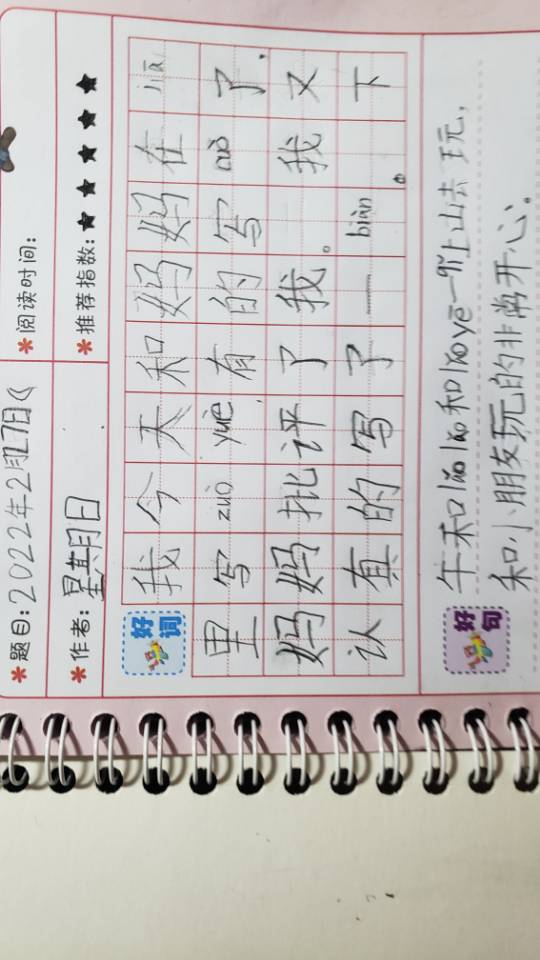 *题目:2022年2月27日( *阅读时间:
*作者:星期日 *推荐指数:★★★★★
好词
我今天和妈妈在jiā
里写zuò yuè,有的写cuò了,
妈妈批评了我。我又
认真的写了一biàn。下
好句
午和lǎo lao和lǎo yē一起上山去玩,
和小朋友玩的非常开心。